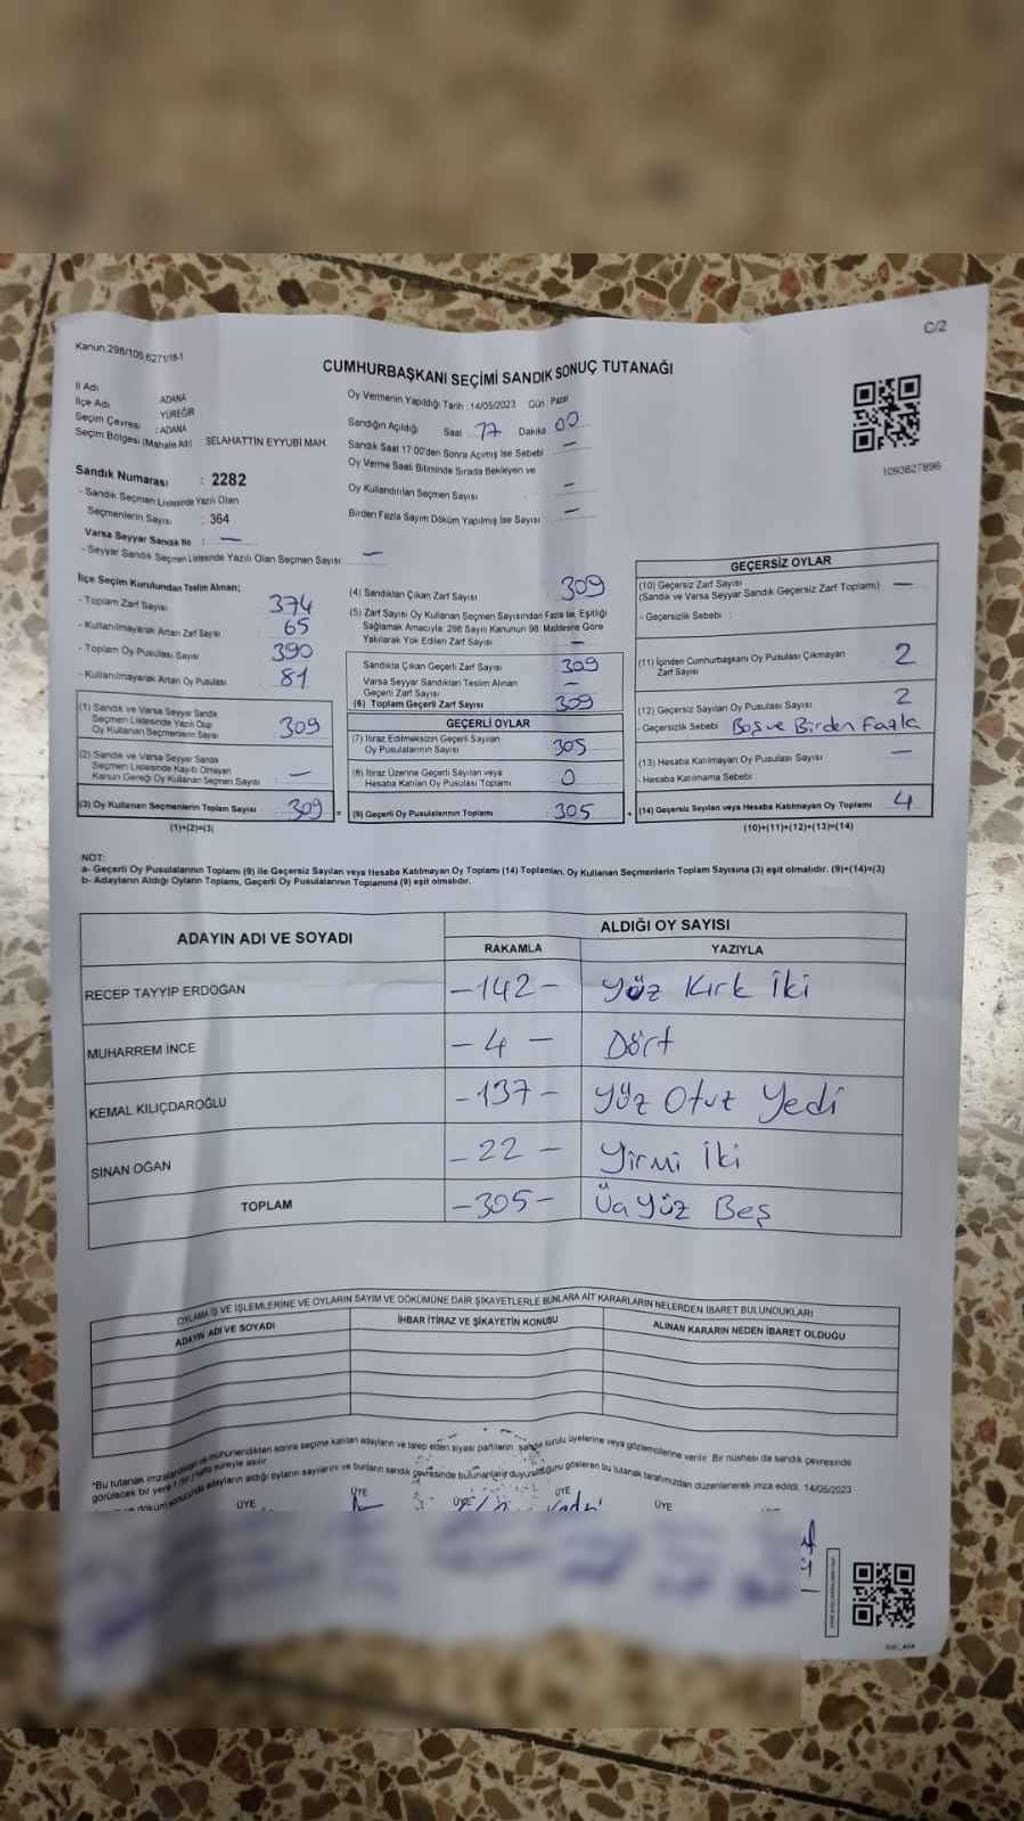 C/2
Kanun:298/105,6271/18-1
CUMHURBAŞKANI SEÇİMİ SANDIK SONUÇ TUTANAĞI
İl Adı ADANA
İlçe Adı YÜREĞİR
Seçim Çevresi : ADANA
Seçim Bölgesi (Mahalle Adı) SELAHATTİN EYYUBİ MAH.
Sandık Numarası : 2282
- Sandık Seçmen Listesinde Yazılı Olan
Seçmenlerin Sayısı : 364
Varsa Seyyar Sandık No : —
- Seyyar Sandık Seçmen Listesinde Yazılı Olan Seçmen Sayısı —
Oy Vermenin Yapıldığı Tarih : 14/05/2023 Gün Pazar
Sandığın Açıldığı Saat 17 Dakika 00
Sandık Saat 17:00'den Sonra Açılmış İse Sebebi —
Oy Verme Saati Bitiminde Sırada Bekleyen ve
Oy Kullandırılan Seçmen Sayısı —
Birden Fazla Sayım Döküm Yapılmış İse Sayısı —
1093627896
İlçe Seçim Kurulundan Teslim Alınan;
- Toplam Zarf Sayısı 374
- Kullanılmayarak Artan Zarf Sayısı 65
- Toplam Oy Pusulası Sayısı 390
- Kullanılmayarak Artan Oy Pusulası 81
(1) Sandık ve Varsa Seyyar Sandık
Seçmen Listesinde Yazılı Olup
Oy Kullanan Seçmenlerin Sayısı 309
(2) Sandık ve Varsa Seyyar Sandık
Seçmen Listesinde Kayıtlı Olmayan
Kanun Gereği Oy Kullanan Seçmen Sayısı —
(3) Oy Kullanan Seçmenlerin Toplam Sayısı 309 =
(1)+(2)=(3)
(4) Sandıktan Çıkan Zarf Sayısı 309
(5) Zarf Sayısı Oy Kullanan Seçmen Sayısından Fazla İse, Eşitliği
Sağlamak Amacıyla; 298 Sayılı Kanunun 98. Maddesine Göre
Yakılarak Yok Edilen Zarf Sayısı —
Sandıkta Çıkan Geçerli Zarf Sayısı 309
Varsa Seyyar Sandıktan Teslim Alınan
Geçerli Zarf Sayısı —
(6) Toplam Geçerli Zarf Sayısı 309
GEÇERLİ OYLAR
(7) İtiraz Edilmeksizin Geçerli Sayılan
Oy Pusulalarının Sayısı 305
(8) İtiraz Üzerine Geçerli Sayılan veya
Hesaba Katılan Oy Pusulası Toplamı 0
(9) Geçerli Oy Pusulalarının Toplamı 305 +
GEÇERSİZ OYLAR
(10) Geçersiz Zarf Sayısı
(Sandık ve Varsa Seyyar Sandık Geçersiz Zarf Toplamı) —
- Geçersizlik Sebebi
(11) İçinden Cumhurbaşkanı Oy Pusulası Çıkmayan
Zarf Sayısı 2
(12) Geçersiz Sayılan Oy Pusulası Sayısı 2
- Geçersizlik Sebebi Boş ve Birden Fazla
(13) Hesaba Katılmayan Oy Pusulası Sayısı —
- Hesaba Katılmama Sebebi
(14) Geçersiz Sayılan veya Hesaba Katılmayan Oy Toplamı 4
(10)+(11)+(12)+(13)=(14)
NOT:
a- Geçerli Oy Pusulalarının Toplamı (9) ile Geçersiz Sayılan veya Hesaba Katılmayan Oy Toplamı (14) Toplamları, Oy Kullanan Seçmenlerin Toplam Sayısına (3) eşit olmalıdır. (9)+(14)=(3)
b- Adayların Aldığı Oyların Toplamı, Geçerli Oy Pusulalarının Toplamına (9) eşit olmalıdır.
ADAYIN ADI VE SOYADI
ALDIĞI OY SAYISI
RAKAMLA YAZIYLA
RECEP TAYYİP ERDOĞAN -142- Yüz Kırk İki
MUHARREM İNCE - 4 - Dört
KEMAL KILIÇDAROĞLU -137- Yüz Otuz Yedi
SİNAN OĞAN - 22 - Yirmi İki
TOPLAM -305- Üç Yüz Beş
OYLAMA İŞ VE İŞLEMLERİNE VE OYLARIN SAYIM VE DÖKÜMÜNE DAİR ŞİKAYETLERLE BUNLARA AİT KARARLARIN NELERDEN İBARET BULUNDUKLARI
ADAYIN ADI VE SOYADI İHBAR İTİRAZ VE ŞİKAYETİN KONUSU ALINAN KARARIN NEDEN İBARET OLDUĞU
*Bu tutanak imzalandıktan ve mühürlendikten sonra seçime katılan adayların ve talep eden siyasi partilerin, sandık kurulu üyelerine veya gözlemcilerine verilir. Bir nüshası da sandık çevresinde
görülecek bir yere 1 (bir) hafta süreyle asılır.
döküm sonucunda adayların aldığı oyların sayılarını ve bunların sandık çevresinde bulunanlara duyurulduğunu gösteren bu tutanak tarafımızdan düzenlenerek imza edildi. 14/05/2023
ÜYE ÜYE ÜYE ÜYE ÜYE